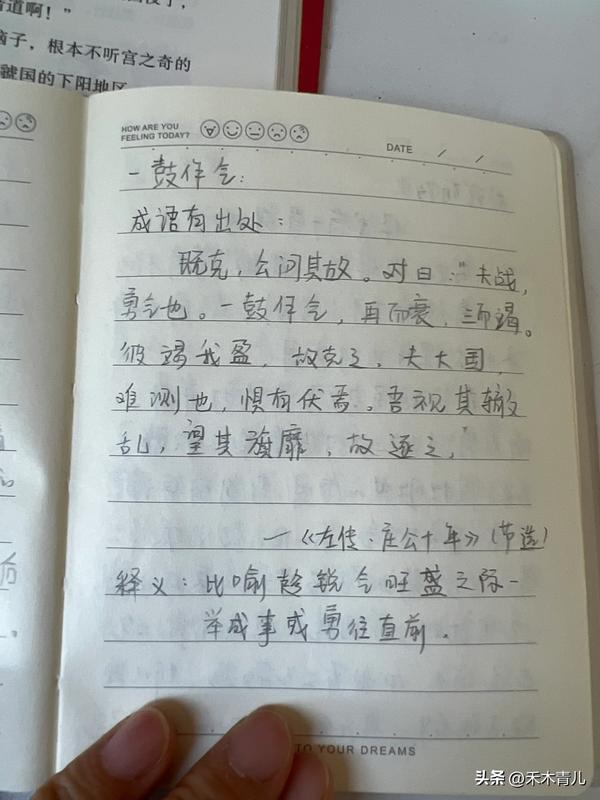 道啊！”
脑子，根本不听宫之奇的
虢国的下阳地区
HOW ARE YOU
FEELING TODAY?
DATE / /
一鼓作气：
成语有出处：
既克，公问其故。对曰：“夫战，
勇气也。一鼓作气，再而衰，三而竭。
彼竭我盈，故克之，夫大国，
难测也，惧有伏焉。吾视其辙
乱，望其旗靡，故逐之，
—《左传·庄公十年》（节选）
释义：比喻趁锐气旺盛之际一
举成事或勇往直前.
TO YOUR DREAMS
头条 @禾木青儿